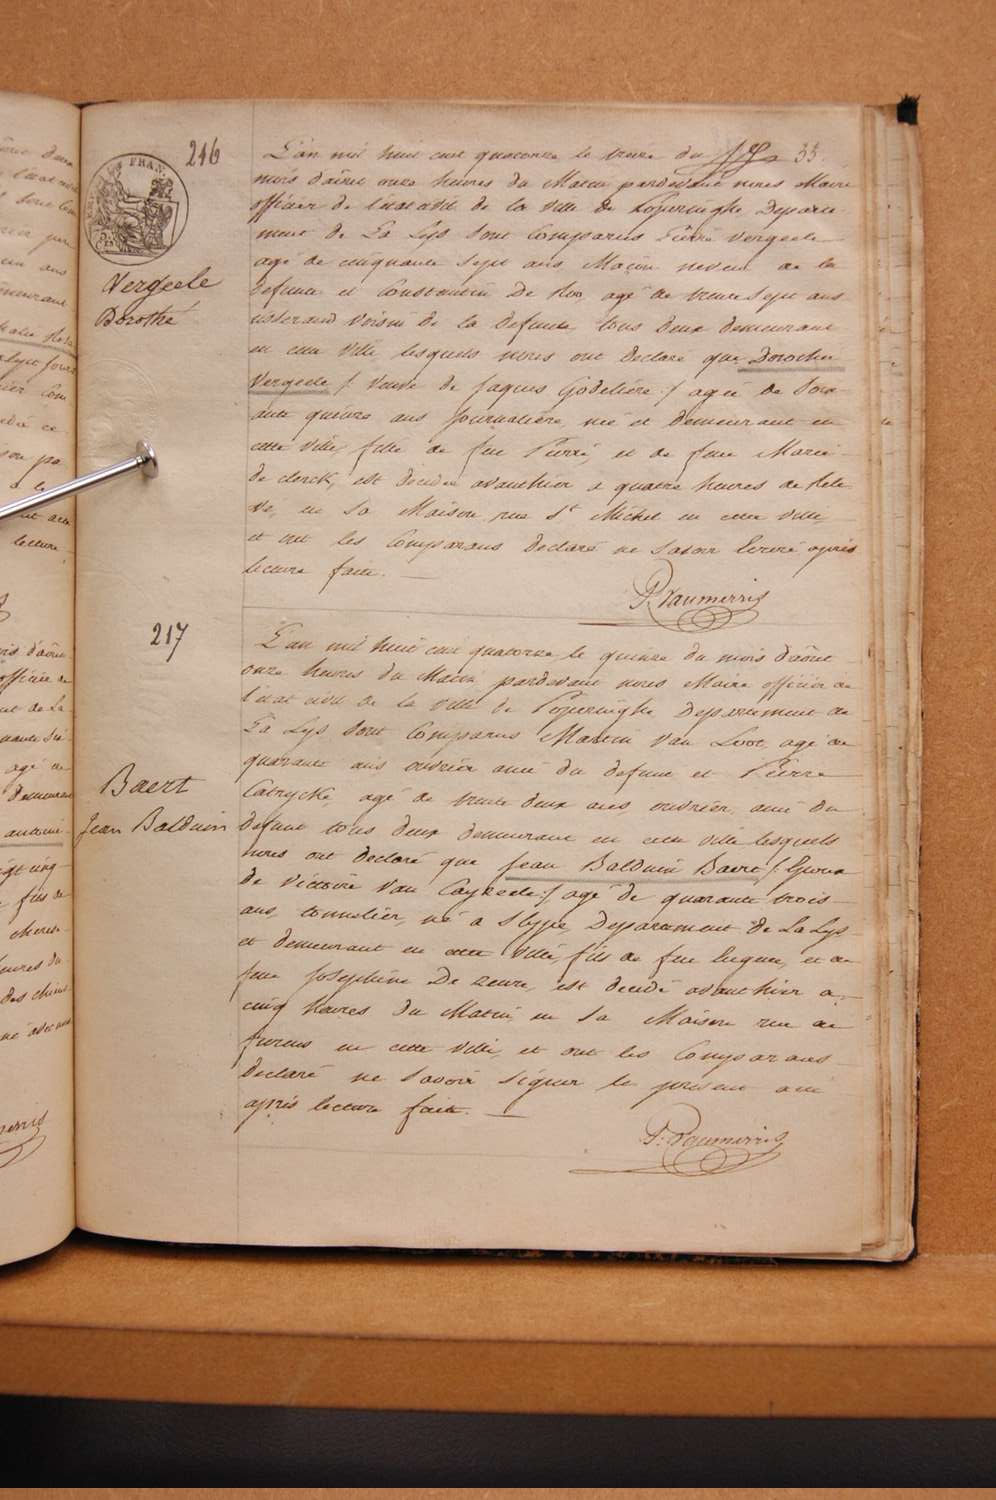 216
Vergeele
Dorothé
L'an mil huit cent quatorze le treize du 33
mois d'aôut onze heures du Matin pardevant nous Maire
officier de l'état civil de la ville de Poperinghe Departe-
ment de La Lys sont Comparus Pierre Vergeele
agé de cinquante sept ans Maçon neveu de la
defunte et Constantin De Roo, agé de trente sept ans
tisserand voisin de la defunte tous deux demeurant
en cette ville lesquels nous ont declaré que Dorothée
Vergeele /: veuve de Jaques Godelière :/ agée de Soix-
ante quinze ans Journalière, née et demeurant en
cette ville, fille de feu Pierre, et de feue Marie
de clerck, est decedée avanthier a quatre heures de Rele-
vé, en Sa Maison rue St Michel en cette ville,
et ont les Comparans declaré ne Savoir Ecrire après
lecture faite.
P. Vaumerris
217
Baert
Jean Balduin
L'an mil huit cent quatorze le quinze du mois d'aôut
onze heures du Matin pardevant nous Maire officier de
l'état civil de la ville de Poperinghe Departement de
La Lys sont Comparus Martin Van Loot, agé de
quarante ans ouvrier amé du defunt et Pierre
Catrycke, agé de trente deux ans, ouvrier, amé du
defunt tous deux demeurant en cette ville lesquels
nous ont declaré que Jean Balduin Baert /: Epoux
de Victoire Van Cayseele :/ agé de quarante trois
ans, tonnelier, né a Slype, Departement de La Lys
et demeurant en cette ville, fils de feu Eugene, et de
feue Josephine De zeure, est decedé avanthier a
cinq heures du Matin, en Sa Maison rue de
furnes en cette ville, et ont les Comparans
declaré ne Savoir Signer le present acte
après lecture faite.
P. Vaumerris